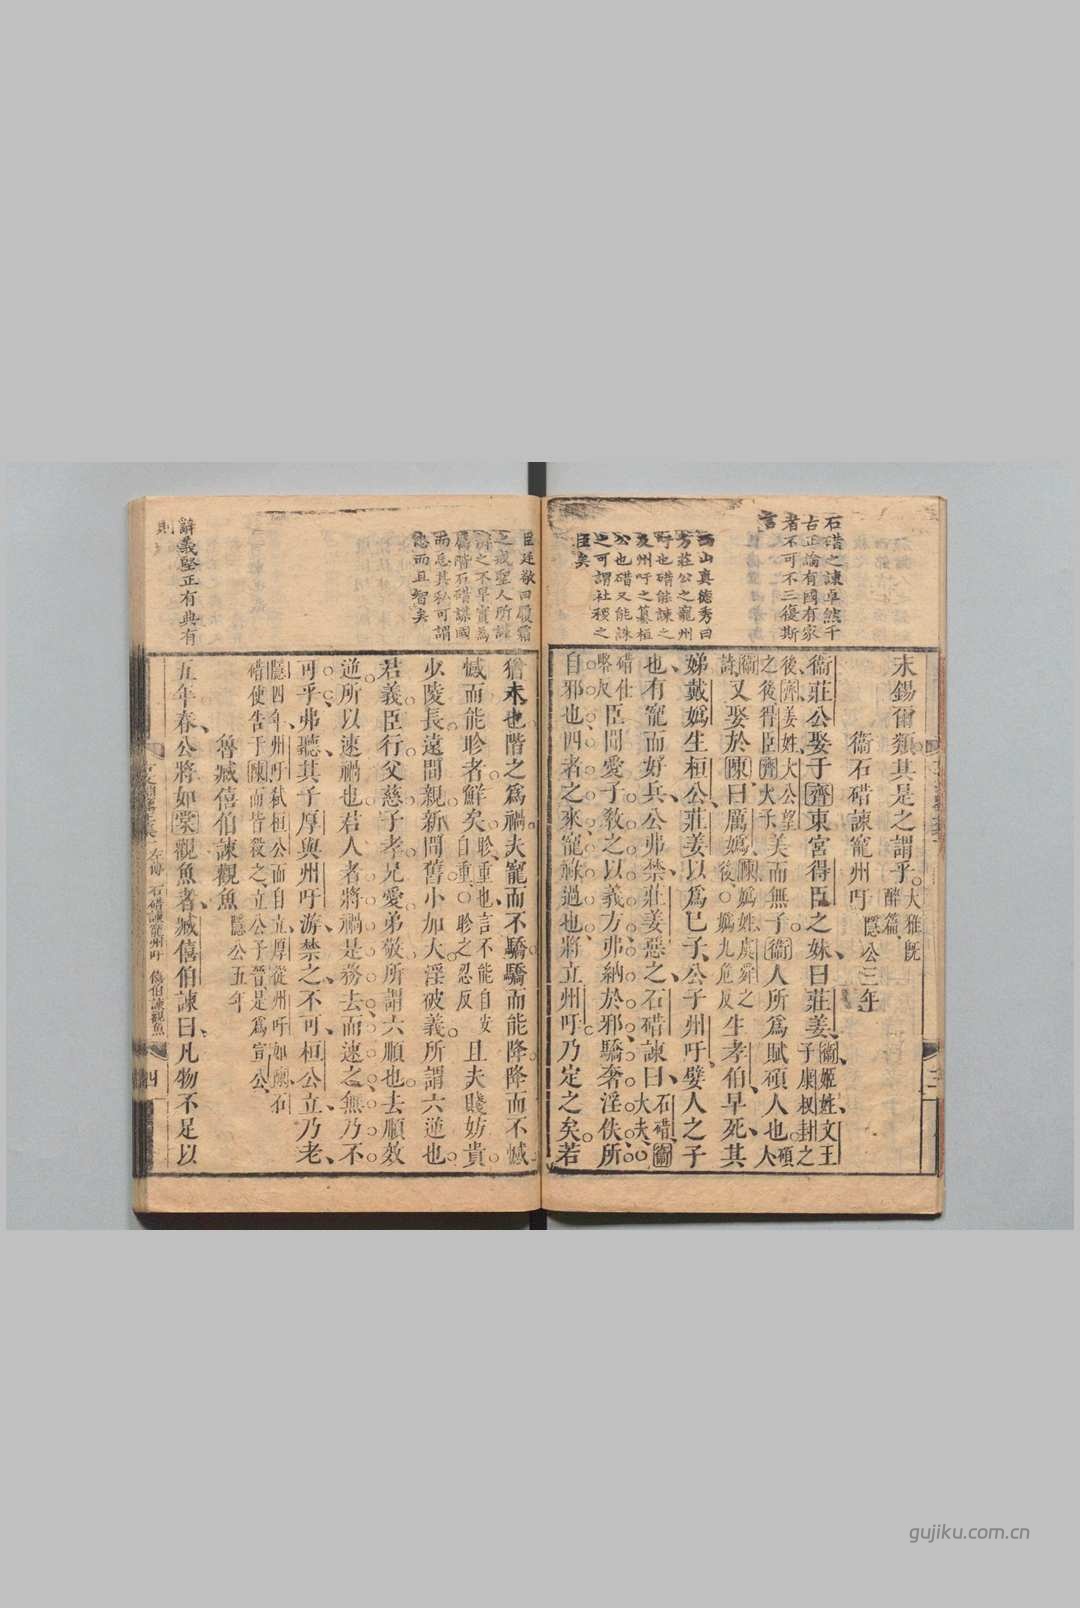 石碏之諫卓然千
古正論有國有家
者不可不三復斯
言
西山真德秀曰
方莊公之寵州
吁也碏能諫之
及州吁之纂桓
公也碏又能誅
之可謂社稷之
臣矣
永錫爾類其是之謂乎大雅既醉篇
衞石碏諫寵州吁 隱公三年
衞莊公娶于齊東宮得臣之妹曰莊姜衞姬姓文王子康叔封之
後齊姜姓大公望之後得臣齊大子美而無子衞人所爲賦碩人也碩人
詩又娶於陳曰厲嬀陳嬀姓虞舜之後嬀九危反生孝伯早死其
娣戴嬀生桓公莊姜以爲己子公子州吁嬖人之子
也有寵而好兵公弗禁莊姜惡之石碏諫曰石碏衞大夫
碏七畧反臣聞愛子敎之以義方弗納於邪驕奢淫佚所
自邪也四者之來寵祿過也將立州吁乃定之矣若
臣廷敬曰履霜
之戒聖人所謹
辯之不早實爲
厲階石碏謀國
而忘其私可謂
忠而且智矣
辭義堅正有典有
則
猶未也階之爲禍夫寵而不驕驕而能降降而不憾
憾而能眕者鮮矣眕重也言不能自安自重眕之忍反且夫賤妨貴
少陵長遠間親新間舊小加大淫破義所謂六逆也
君義臣行父慈子孝兄愛弟敬所謂六順也去順效
逆所以速禍也君人者將禍是務去而速之無乃不
可乎弗聽其子厚與州吁游禁之不可桓公立乃老
隱四年州吁弑桓公而自立厚從州吁如陳石
碏使告于陳而皆殺之立公子晉是爲宣公
魯臧僖伯諫觀魚 隱公五年
五年春公將如棠觀魚者臧僖伯諫曰凡物不足以
左傳 石碏諫寵州吁 僖伯諫觀魚
四